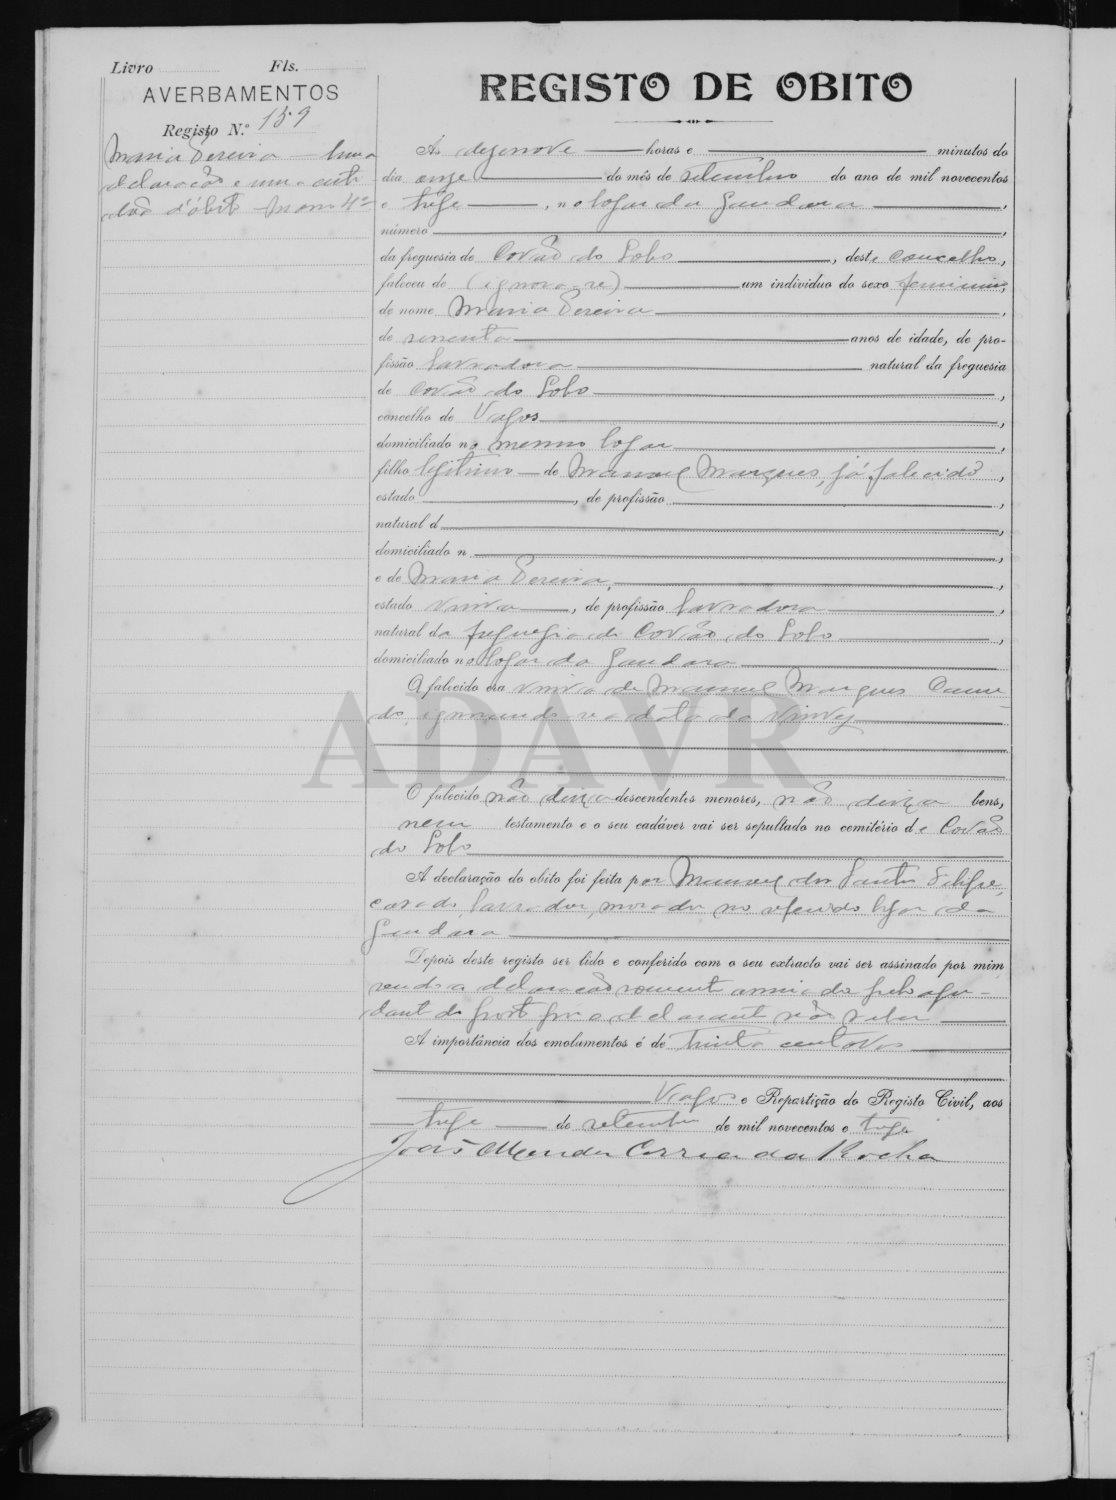 Livro Fls.
AVERBAMENTOS
Registo N.º 159
Maria Pereira — Uma
declaração e uma certi
dão d'óbito Maço 4º
REGISTO DE OBITO
Ás dezenove horas e minutos do
dia onze do mês de setembro do ano de mil novecentos
e treze, no logar da Gandara,
número,
da freguesia de Covão do Lobo, deste concelho,
faleceu de (ignora-se) um individuo do sexo feminino,
de nome Maria Pereira,
de sessenta anos de idade, de pro-
fissão lavradora natural da freguesia
de Covão do Lobo,
concelho de Vagos,
domiciliado no mesmo logar,
filho legitimo de Manuel Marques, já falecido,
estado, de profissão,
natural d,
domiciliado n,
e de Maria Pereira,
estado viuva, de profissão lavradora,
natural da freguesia de Covão do Lobo,
domiciliado no logar da Gandara
A falecida era viuva de Manuel Marques
do ignorando se a data da viuvez
ADAVR
O falecido não deixa descendentes menores, não deixa bens,
nem testamento e o seu cadáver vai ser sepultado no cemitério de Covão
do Lobo
A declaração do obito foi feita por Manuel dos Santos
casado, lavrador, morador no referido logar da
Gandara
Depois deste registo ser lido e conferido com o seu extracto vai ser assinado por mim
sendo a declaração somente assinada pelo aju-
dante do posto por o declarante não saber
A importância dos emolumentos é de trinta centavos
Vagos e Repartição do Registo Civil, aos
treze de setembro de mil novecentos e treze
João Mendes Correia da Rocha